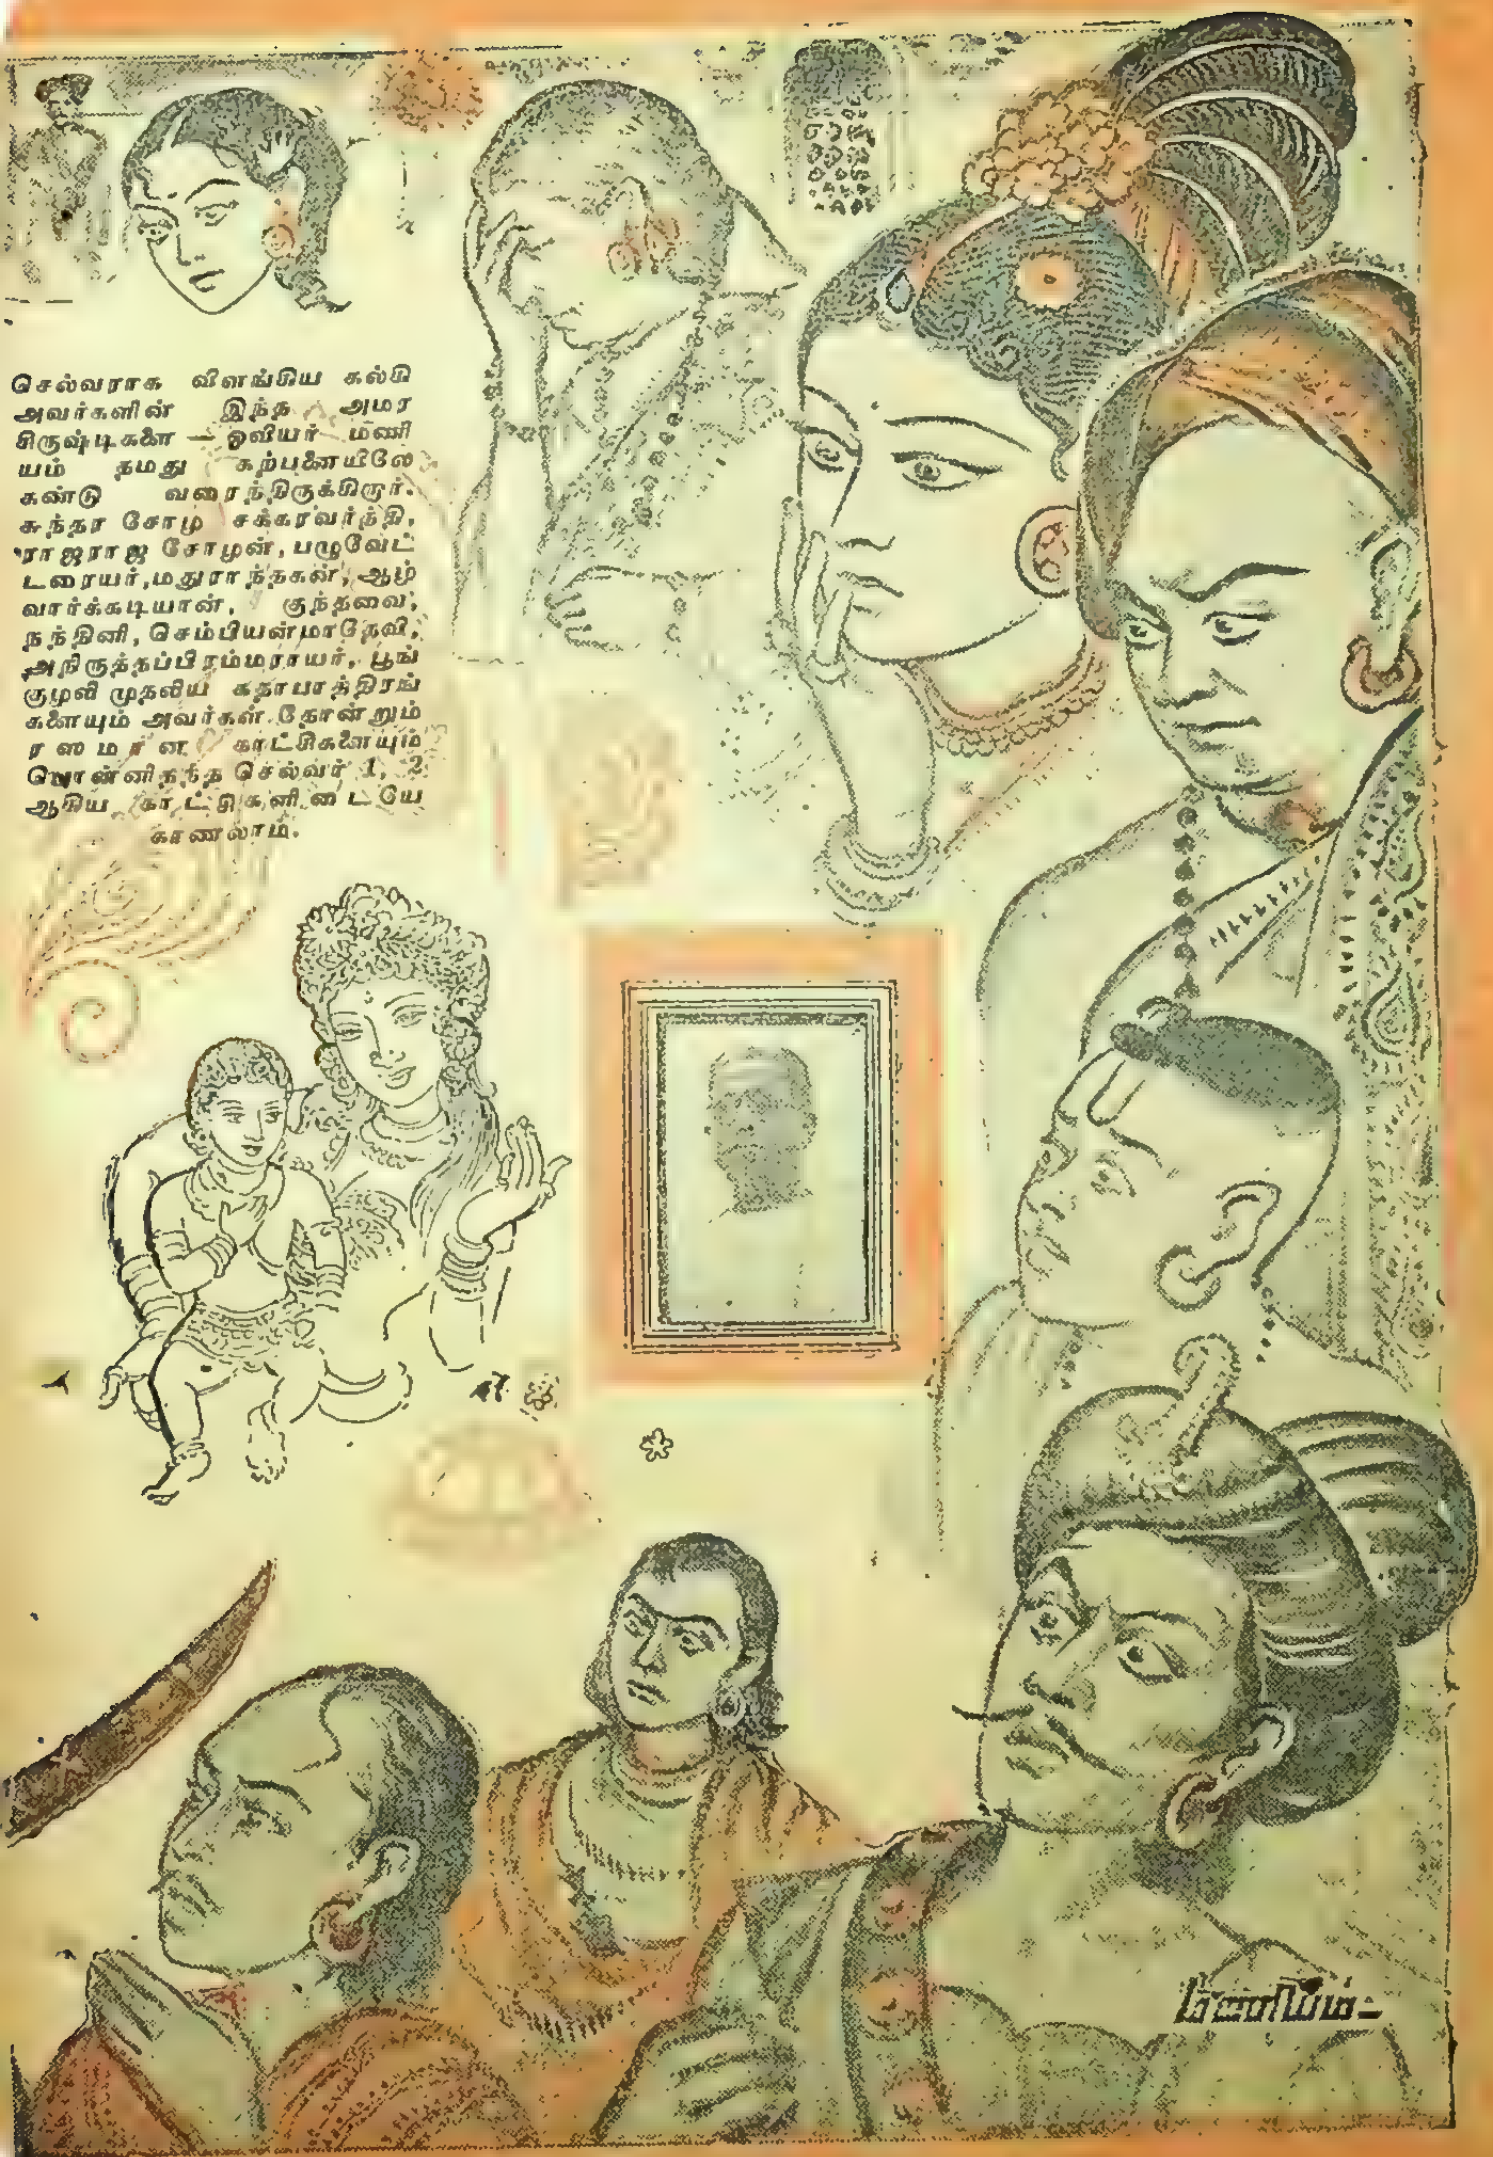 செல்வராக விளங்கிய கல்கி
அவர்களின் இந்த அமர
சிருஷ்டிகளை — ஓவியர் மணி
யம் தமது கற்பனையிலே
கண்டு வரைந்திருக்கிறார்.
சுந்தர சோழ சக்கரவர்த்தி,
ராஜராஜ சோழன், பழுவேட்
டரையர், மதுராந்தகன், ஆழ்
வார்க்கடியான், குந்தவை,
நந்தினி, செம்பியன்மாதேவி,
அநிருத்தப்பிரம்மராயர், பூங்
குழலி முதலிய கதாபாத்திரங்
களையும் அவர்கள் தோன்றும்
ரஸமான காட்சிகளையும்
பொன்னிதந்த செல்வர் 1, 2
ஆகிய காட்சிகளிடையே
காணலாம்.
மணியம்-